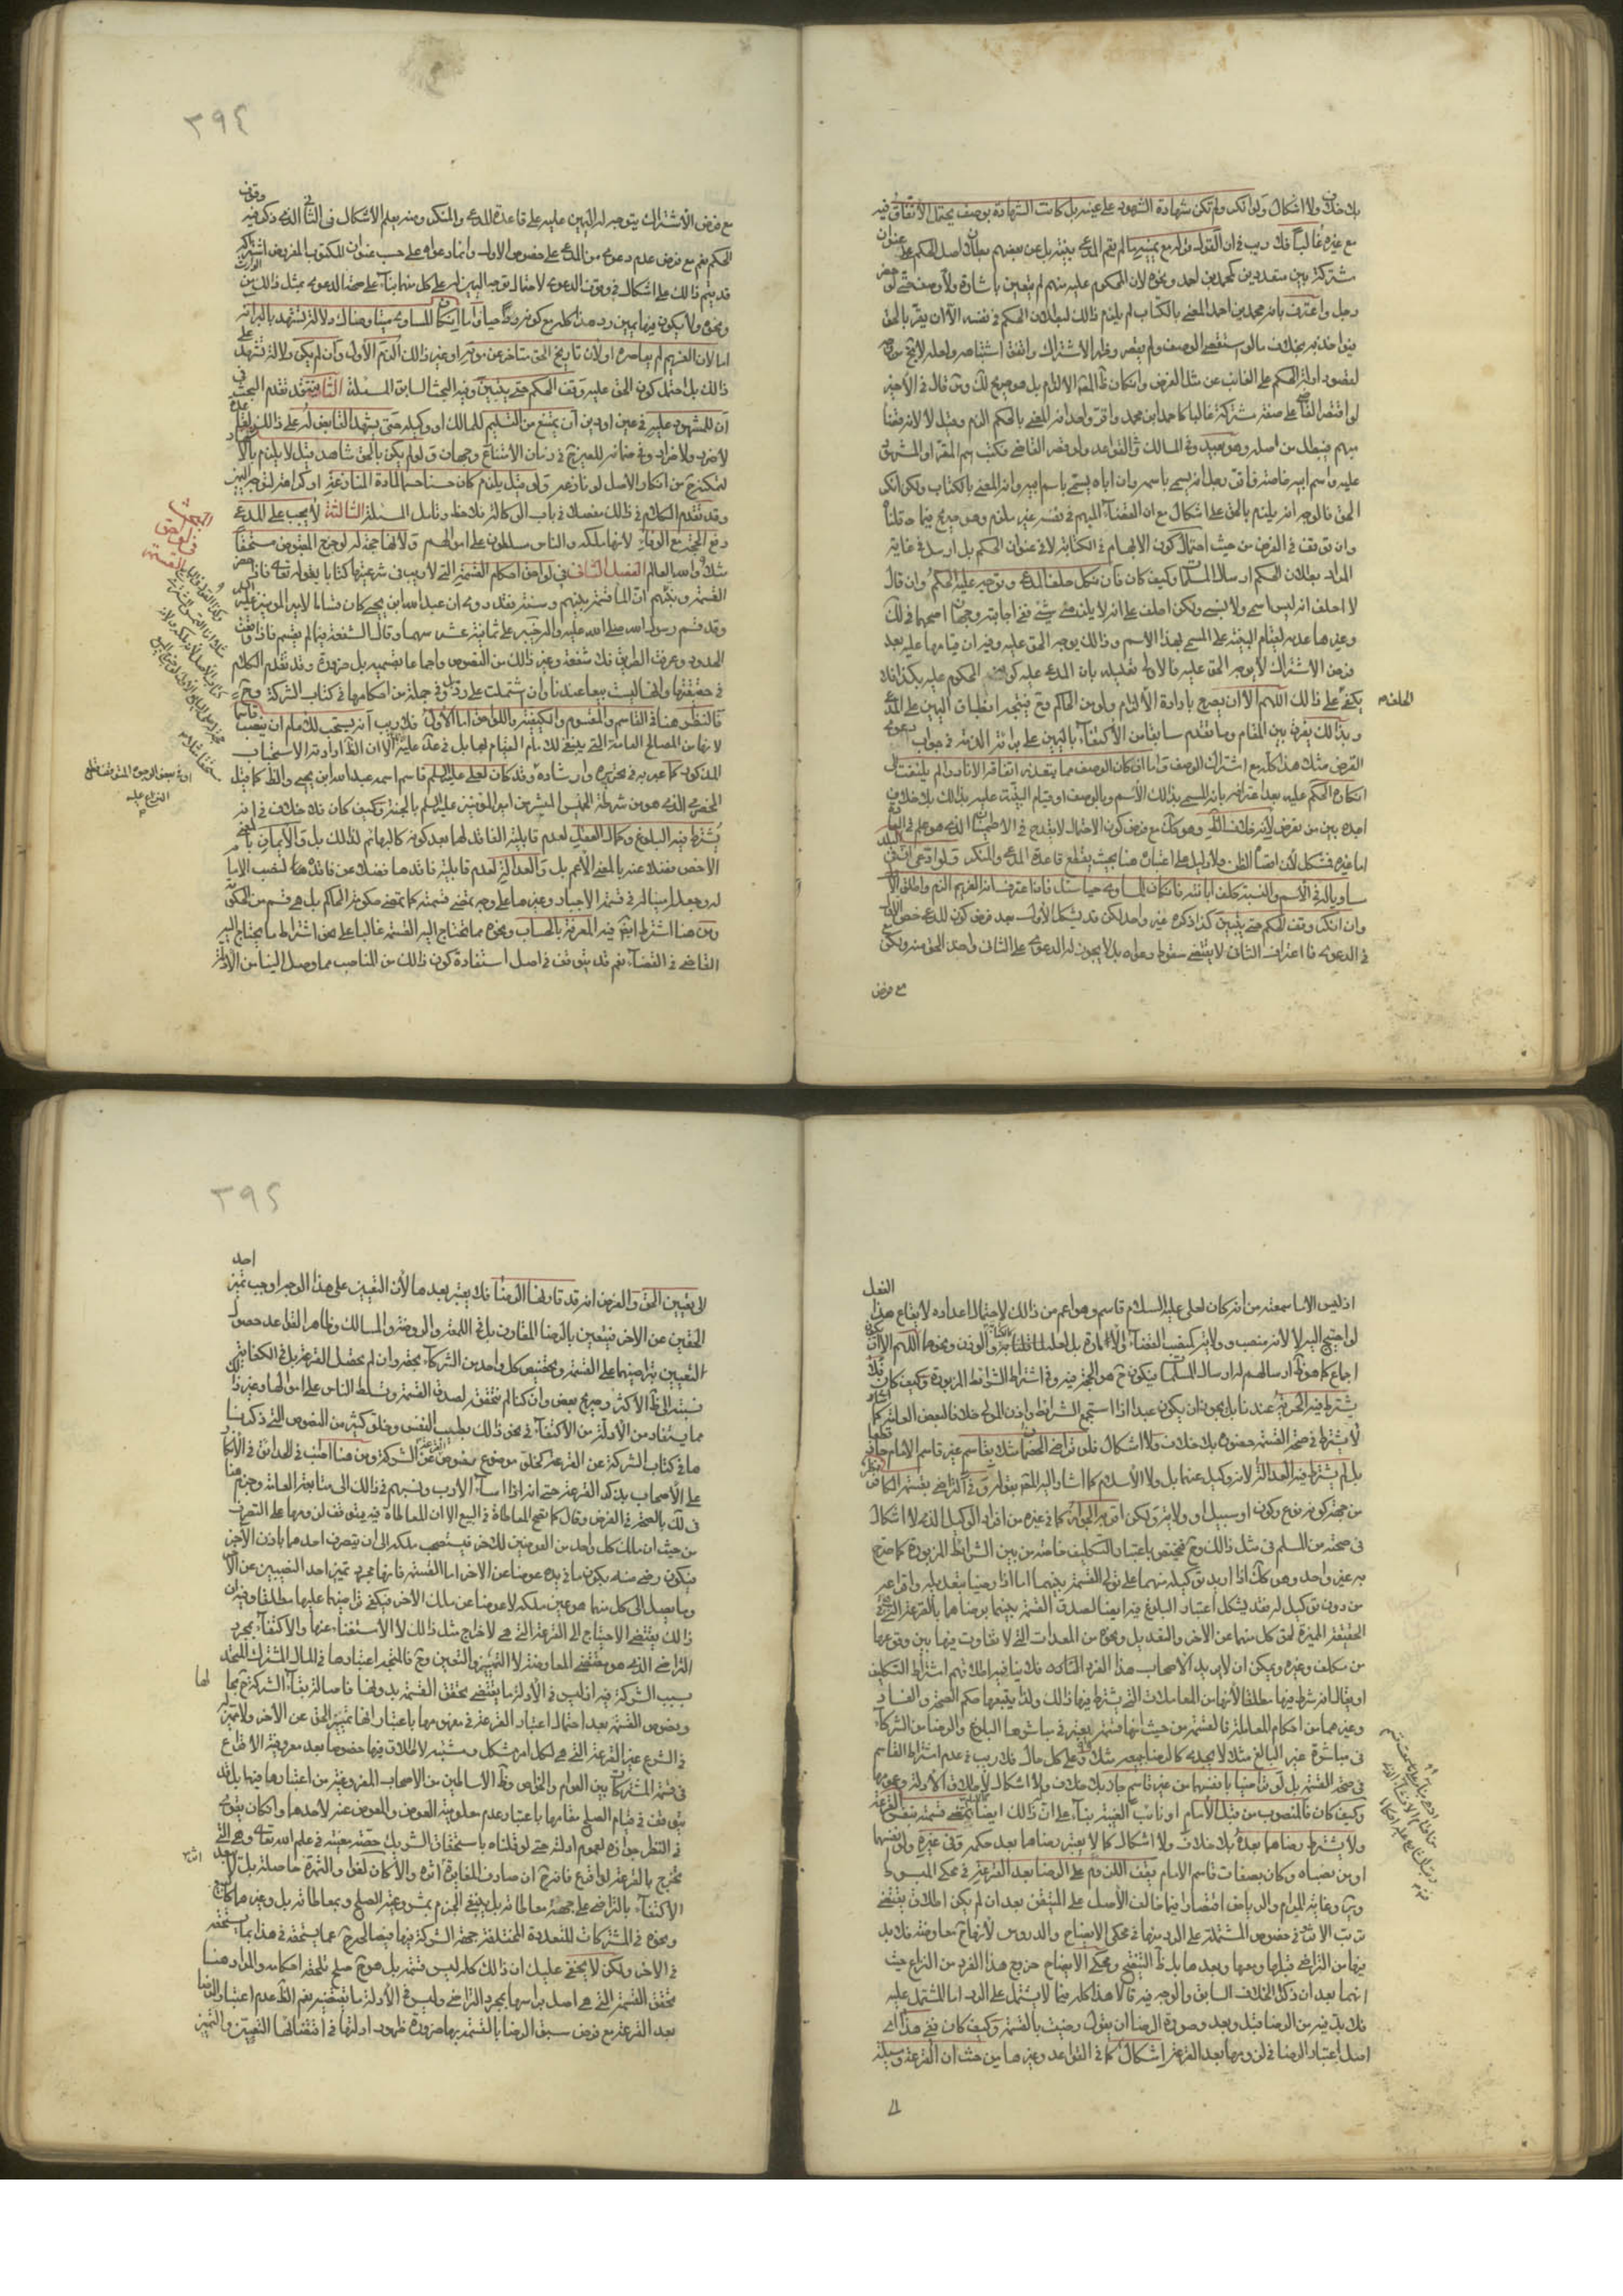 بلا خلاف ولا اشكال ولو انكر ولم تكن شهادة الشهود على عينه بل كانت الشهادة بوصف يحتمل الاتفاق فيه
مع غيره غالبا فلا ريب في ان القول قوله مع يمينه ما لم يقم المدعى بينة بل عن بعضهم بطلان اصل الحكم على عنوان
مشتركة بين متعددين كمحمد بن احمد ونحوه لان المحكوم عليه مبهم لم يتعين باشارة ولا وصف حتى لو حضر
رجل واعترف بانه محمد بن احمد المعنى بالكتاب لم يلزم ذلك لبطلان الحكم في نفسه الا ان يقر بالحق
فيؤاخذ به بخلاف ما لو استقصى الوصف ولم يقصر وظهر الاشتراك واتفق اشتباهه ولعله لا يخ من وجه
لقصور ادلة الحكم على الغائب عن مثل الفرض وان كان ظ الالزام بل هو صريح لك ومن قال في الأخير
لو اقتصر القاضي على صفة مشتركة غالبا كاحمد ابن محمد واقر واحد انه المعنى بالحكم الزم وقيل لا لانه قضاء
مبهم فيبطل من اصله وهو بعيد وفي المسالك والقواعد ولو قصر القاضي فكتب اسم المقر او المشهود
عليه واسم ابيه خاصة فاقر رجل انه يسمى باسمه وان اباه يسمى باسم ابيه وانه المعنى بالكتاب ولكن انكر
الحق فالوجه انه يلزم بالحق على اشكال مع ان القضاء المبهم في نفسه غير ملزم وهو صريح فيما قلناه
وان توقف في الفرض من حيث احتمال كون الابهام في الكتابة لا في عنوان الحكم بل ارسل في غاية
المراد بطلان الحكم ارسال المسلمات وكيف كان فان نكل حلف المدعى وتوجه عليه الحكم وان قال
لا احلف انه ليس اسمي ولا نسبي ولكن احلف على انه لا يلزمني شئ ففي اجابته وجهان اصحهما في لك
وغيرها عدمه لقيام البينة على المسمى بهذا الاسم وذلك يوجه الحق عليه وفيه ان قيامها عليه بعد
فرض الاشتراك لا يوجه الحق عليه فالاولى تعليله بان المدعى عليه كونه المحكوم عليه بكذا فلا
يكفي على ذلك اللهم الا ان يصرح بارادة الالزام ولو من الحاكم وح فيتجه انطباق اليمين على المدعى الحلف
وبذلك يفرق بين المقام وما تقدم سابقا من الاكتفاء باليمين على برائة الذمة في جواب دعوى
القرض مثلا هذا كله مع اشتراك الوصف واما ان كان الوصف مما يتعذر اتفاقه الا نادرا لم يلتفت الى
انكاره الحكم عليه بعد اعترافه بانه المسمى بذلك الاسم وبالوصف او قيام البينة عليه بذلك بلا خلاف
اجده بين من تعرض لانه خلاف الظ وهو كك مع فرض كون الاحتمال لا يقدح في الاطمينان الذي هو علم في العادة
اما غيره فمشكل لان اقصاه الظن ولا دليل على اعتباره هنا بحيث يقطع قاعدة المدعى والمنكر ولو ادعى ان في البلد
مساو له في الاسم والنسبة كلف ابانته فان كان المساوي حيا سئل فان اعترف انه الغريم الزم واطلق الاول
وان انكر وقف الحكم حتى يتبين كذا ذكره غير واحد لكن قد يشكل الاول بعد فرض كون للمدعى خص الاول
في الدعوى فاعتراف الثاني لا يقتضي سقوط دعواه بل لا يجوز له الدعوى على الثاني واخذ الحق منه ويمكن
مع فرض
٣٩٤
مع فرض الاشتراك يتوجه له اليمين عليه على قاعدة المدعى والمنكر ومنه يعلم الاشكال في الثاني الذي ذكر فيه وقوف
الحكم نعم مع فرض عدم دعوى من المدعى على خصوص الاول وانما دعواه على حسب عنوان المكتوب المفروض اشتراكه
قد يتم ذلك على اشكال في وقوف الدعوى لاحتمال توجه اليمين له على كل منهما بناء على صحة الدعوى بمثل ذلك من الوارث
ونحوه ولا يكون فيها يمين رد هذا كله مع كونه موجودا حيا واما ان كان المساوي ميتا وهناك دلالة تشهد بالبرائة
اما لان الغريم لم يعاصره او لان تاريخ الحق متأخر عن موته او غير ذلك الزم الأول وان لم يكن دلالة تشهد على
ذلك بل احتمل كون الحق عليه وقف الحكم حتى يتبين وفيه البحث السابق المسئلة الثانية قد تقدم البحث في
ان للمشهود عليه في عين او دين ان يمتنع من التسليم للمالك او وكيله حتى يشهد القابض له على ذلك
لا ضرر ولا ضرار وفي ضمانه للعين ح في زمان الامتناع وجهان ولو لم يكن بالحق شاهد قيل لا يلزم بالا
لتمكنه ح من انكار الاصل لو نازعه ولو قيل يلزم كان حسنا حسما لمادة المنازعة او كراهة لتوجه اليمين
وقد تقدم الكلام في ذلك مفصلا في باب الوكالة فلاحظ وتامل المسئلة الثالثة لا يجب على المدعى
دفع الحجة مع الوفاء لانها ملكه والناس مسلطون على اموالهم ولانها حجة له لو خرج المقبوض مستحقا
مثلا والله العالم الفصل الثالث في لواحق احكام القسمة التي لا ريب في شرعيتها كتابا بقوله تعالى واذا حضر
القسمة ونبئهم ان الماء قسمة بينهم وسنة فقد روى ان عبد الله ابن يحيى كان قساما لامير المؤمنين عليه
وقد قسم رسول الله صلى الله عليه واله خيبر على ثمانية عشر سهما وقال الشفعة فيما لم يقسم فاذا وقعت
الحدود وعرفت الطرق فلا شفعة وغير ذلك من النصوص واجماعا بقسميه بل ضرورة وقد تقدم الكلام
في حقيقتها وانها ليست بيعا عندنا وان شتملت على رد بل وفي جملة من احكامها في كتاب الشركة وح
فالنظر هنا في القاسم والمقسوم والكيفية واللواحق اما الأول فلا ريب انه يستحب للامام ان ينصب قاسما
لانها من المصالح العامة التي ينبغي للامام القيام بها بل في عدة عليه الا ان الظ ارادته الاستحباب
المذكور كما عبر به في تحريره وارشاده وقد كان لعلي عليه السلم قاسم اسمه عبد الله ابن يحيى والظ كما قيل
الحضرمي الذي هو من شرطة الخميس المبشر من امير المؤمنين عليه السلم بالجنة وكيف كان فلا خلاف في انه
يشترط فيه البلوغ وكمال العقل لعدم قابلية الفاقد لهما بعد كونه كالبهائم لذلك بل والأيمان بالمعنى
الاخص فضلا عنه بالمعنى الأعم بل والعدالة لعدم قابلية فاقدها فضلا عن فاقد هما لنصب الامام
له وجعل امينا له في قسمة الاجبار وغيرها على وجه تمضى قسمته كما تمضى حكومة الحاكم بل هي قسم من الحكومة
ومن هنا اشترط ايضا فيه المعرفة بالحساب ونحوه مما تحتاج اليه القسمة غالبا على نحو اشتراط ما يحتاج اليه
القاضي في القضاء نعم قد يتوقف في اصل استفادة كون ذلك من المناصب مما وصل الينا من الادلة
البحث في لواحق القسمة
اذ ليس الا ما سمعته من انه كان لعلي عليه السلام قاسم وهو اعم من ذلك لاحتمال اعداده لايقاع هذا الفعل
لو احتيج اليه لا لانه منصب وولاية كمنصب القضاء والامارة بل لعله كالكيال والوزان ونحوهما اللهم الا ان يكون
اجماع كما هو ظ ارسالهم له ارسال المسلمات فيكون ح هو الحجة فيه وفي اشتراط الشرائط المزبورة وكيف كان فلا
يشترط فيه الحرية عندنا بل يجوز ان يكون عبدا اذا استجمع الشرائط واذن المولى خلافا لبعض العامة كما
لا يشترط في صحة القسمة حضوره بلا خلاف ولا اشكال فلو تراضى الخصمان مثلا بقاسم غير قاسم الامام جاز قطعا
بل لم يشترط فيه العدالة لانه وكيل عنهما بل ولا الأسلام كما اشار اليه المصنف بقوله وفي التراضي بقسمة الكافر نظر
من جهة كونه نوع ركون او سبيل او ولاية ولكن اقربه الجواز كما في غيره من افراد الوكيل الذي لا اشكال
في صحته من المسلم في مثل ذلك وح فيختص باعتبار التكليف خاصة من بين الشرائط المزبورة كما صرح
به غير واحد وهو كك اذا اريد توكيله منهما على تولي القسمة بينهما اما اذا رضيا بتعديله واقتراعه
من دون توكيل له فقد يشكل اعتبار البلوغ فيه ايضا لصدق القسمة بينهما برضاهما بالقرعة التي هي في
الحقيقة المميزة لحق كل منهما عن الاخر والتعديل ونحوه من المعدات التي لا تفاوت فيها بين وقوعها
من مكلف وغيره ويمكن ان لا يريد الأصحاب هذا الفرد النادر فلا ينافيه اطلاقهم اشتراط التكليف
او يقال انه شرط فيها مطلقا لأنها من المعاملات التي يشترط فيها ذلك ولذا يتبعها حكم الصحة والفساد
وغيرهما من احكام المعاملة فالقسمة من حيث انها قسمة يعتبر في مباشرها البلوغ والرضا من الشركاء
في مباشرة غير البالغ مثلا لا يجديه كالرضا بمبيعه مثلا وعلى كل حال فلا ريب في عدم اشتراط القاسم
في صحة القسمة بل لو تراضيا بانفسهما من غير قاسم جاز بلا خلاف ولا اشكال لاطلاق الأدلة وعمومها
وكيف كان فالمنصوب من قبل الأمام او نائب الغيبة بناء على ان ذلك ايضا تمضى قسمته بنفس القرعة
ولا يشترط رضاهما بعدها بلا خلاف ولا اشكال كما لا يعتبر رضاهما بعد حكمه وفي غيره ولو بنفسهما
او من نصباه وكان بصفات قاسم الامام يقف اللزوم على الرضا بعد القرعة في محكى المبسوط
وس وغاية المرام والرياض اقتصارا فيما خالف الأصل على المتيقن بعد ان لم يكن اطلاق يقتضي
ترتب الاثر في خصوص المشتملة على الرد منها في محكى الايضاح والدروس لأنها ح معاوضة فلا بد
فيها من التراضي قبلها ومعها وبعدها بل ظ التنقيح ومحكى الايضاح خروج هذا الفرد من النزاع حيث
انهما بعد ان ذكرا الخلاف السابق والوجه فيه قالا هذا كله فيما لا يشتمل على الرد اما المشتمل عليه
فلا بد فيه من الرضا قبل وبعد وصورة الرضا ان يقول رضيت بالقسمة وكيف كان ففي هذا اي
اصل اعتبار الرضا في لزومها بعد القرعة اشكال كما في القواعد وغيرها من حيث ان القرعة وسيلة
٣٩٥
الى تعيين الحق والفرض انه قد قارنها الرضا فلا يعتبر بعدها لأن التعيين على هذا الوجه اوجب تميز احد
الحقين عن الاخر فيتعين بالرضا المقارن بل في اللمعة والروضة والمسالك وظاهر الفقاعد حصول
التعيين بتراضيهما على القسمة وتخصيص كل واحد من الشركاء بحصة وان لم تحصل القرعة بل في الكفاية
نسبته الى ظ الأكثر وصريح بعض وان كنا لم نتحققه لصدق القسمة وتسلط الناس على اموالها وغير ذلك
مما يستفاد من الأدلة من الاكتفاء في نحو ذلك بطيب النفس وخلو كثير من النصوص التي ذكرنا
ها في كتاب الشركة عن القرعة كخلو موضوع نصوص الشركة ومن هنا اطنب في الحدائق في الأنكار
على الأصحاب بذكر القرعة حتى انه اذا اساء الأدب ونسبهم في ذلك الى متابعة العامة وجزم هنا
في لك بالصحة في الفرض وقال كما تصح المعاطاة في البيع الا ان المعاطاة فيه يتوقف لزومها على التصرف
من حيث ان ملك كل واحد من العوضين للاخر فيستصحب ملكه الى ان يتصرف احدهما باذن الاخر
فيكون رضى منه بكون ما في يده عوضا عن الاخر اما القسمة فانها مجرد تميز احد النصيبين عن الاخر
وما يصل الى كل منهما هو عين ملكه لا عوضا عن ملك الأخر فيكفي تراضيهما عليها مطلقا وفيه ان
ذلك يقتضي الاحتياج الى القرعة التي هي لاخراج مثل ذلك لا الاستغناء عنها والأكتفاء بمجرد
التراضي الذي هو مقتضى المعاوضة لا التمييز والتعين وح فالمتجه اعتبارها في المال المشترك المتحد
بسبب الشركة فيه اذ ليس في الأدلة ما يقتضي تحقق القسمة بدونها فاصالة بقاء الشركة ح بحا لها
ونصوص القسمة بعد احتمال اعتبار القرعة في مفهومها باعتبار انها تمييز الحق عن الأخر ولا تميز له
في الشرع غير القرعة التي هي لكل امر مشكل ومشتبه لا اطلاق فيها خصوصا بعد معروفية الاقتراع
في قسمة المشتركات بين العوام والخواص وظ الاساطين من الاصحاب المفروغية من اعتبارها فيها بل قد
يتوقف في قيام الصلح مقامها باعتبار عدم معلومية العوض والمعوض عنه لأحدهما وان كان يقوى
في النظر جوازه لعموم ادلته حتى لو قلناه باستحقاق الشريك حصة معينة في علم الله تعالى وهي التي
تخرج بالقرعة لو اقترع فانه ح ان صادف المغايرة اثره والا كان لغوا والثمرة حاصلة بل لا يبعد
الأكتفاء بالتراضي على جهة معاطاته بل ينبغي الجزم بمشروعية الصلح وبمعاطاته بل وغيرها كالبيع
ونحوه في المشتركات المتعددة المختلفة جهة الشركة فيها فيصالح ح عما يستحقه في هذا بما يستحقه
في الاخر ولكن لا يخفى عليك ان ذلك كله ليس قسمة بل هو ح صلح تلحقه احكامه والمراد هنا
تحقق القسمة التي هي اصل براسها بمجرد التراضي وليس في الأدلة ما يقتضيه نعم الظ عدم اعتبار الرضا
بعد القرعة مع فرض سبق الرضا بالقسمة بها ضرورة ظهور ادلتها في اقتضائها التعيين والتميز